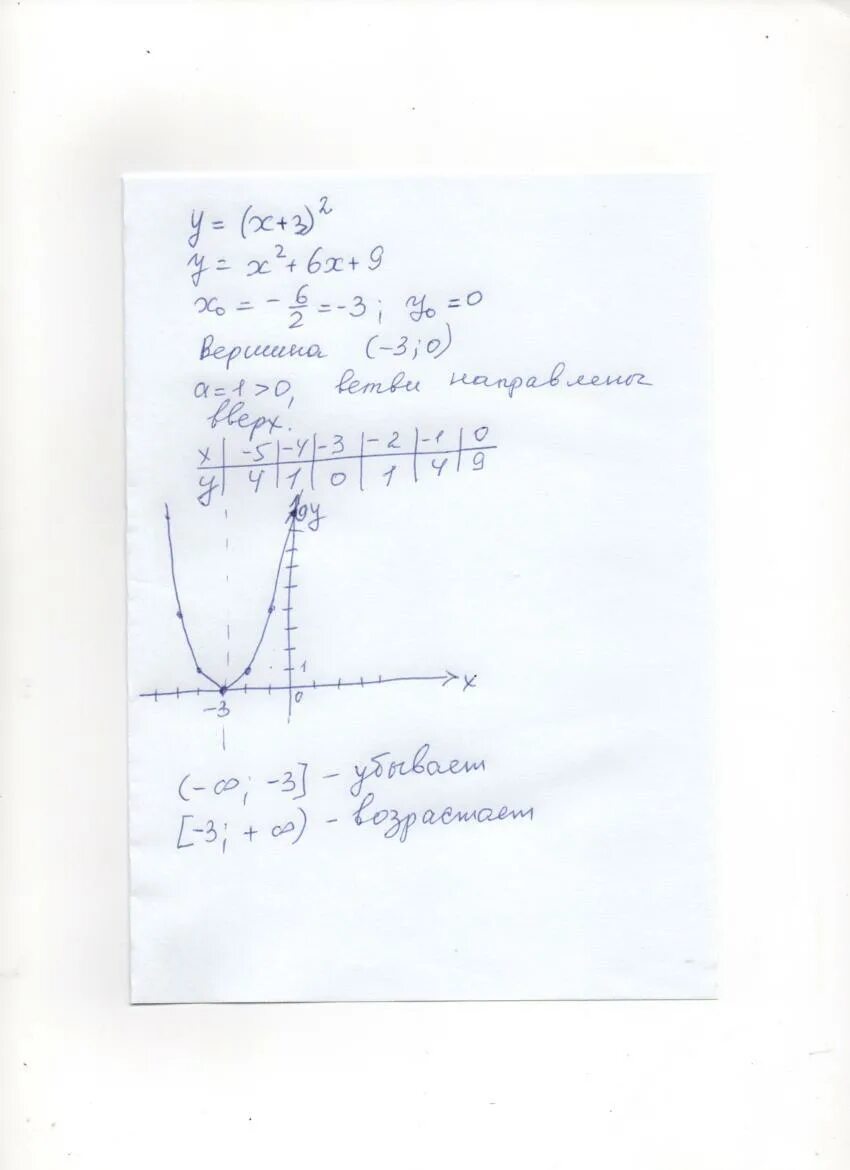 y = (x+3)²
y = x² + 6x + 9
x₀ = - 6/2 = -3 ; y₀ = 0
Вершина (-3; 0)
a = 1 > 0, ветви направлены
вверх.
x | -5 | -4 | -3 | -2 | -1 | 0
y | 4 | 1 | 0 | 1 | 4 | 9
9 y
1
x
-3 0
(-∞; -3] - убывает
[-3; +∞) - возрастает